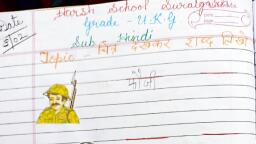 Harsh School Suratgarh
Grade - U.K.G
Date
5/02
Sub Hindi
Topic - चित्र देखकर शब्द लिखो
फौजी